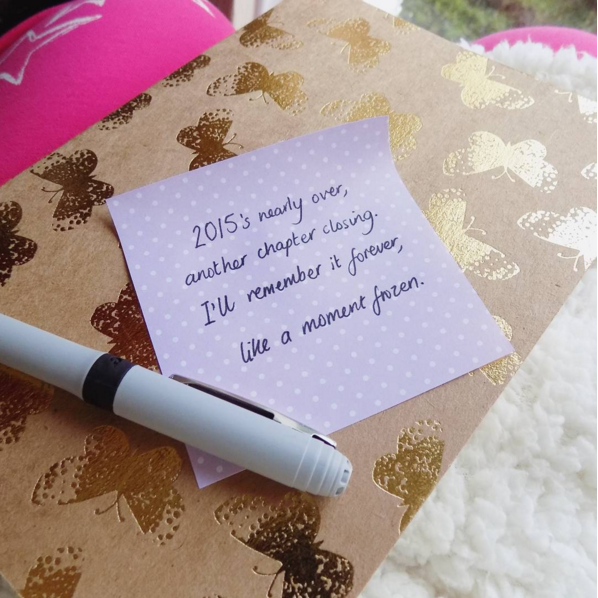 2015's nearly over,
another chapter closing.
I'll remember it forever,
like a moment frozen.